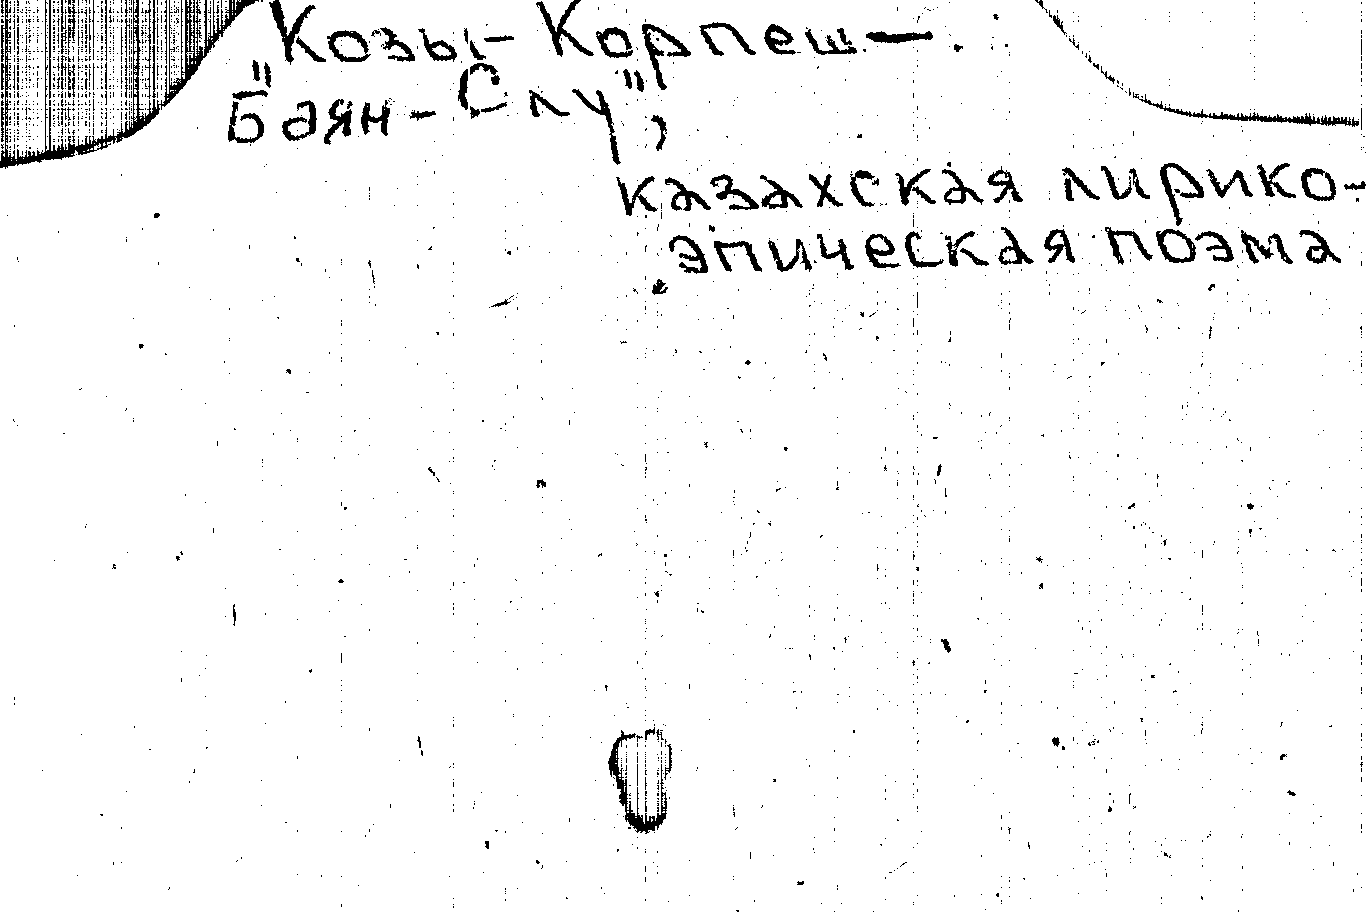 "Козы-Корпеш—
Баян-Слу",
казахская лирико-
эпическая поэма